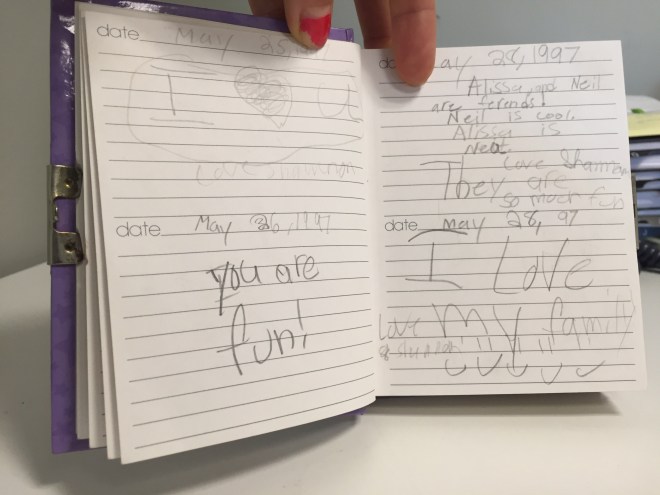 date May 25,
I U
Love shannon
date May 26, 1997
you are
fun!
ay 28, 1997
Alissa and Neil
are ferends!
Neil is cool.
Alissa is
Neat.
Love Shannon
They are
so much fun
date May 28, 97
I Love
my family
Love